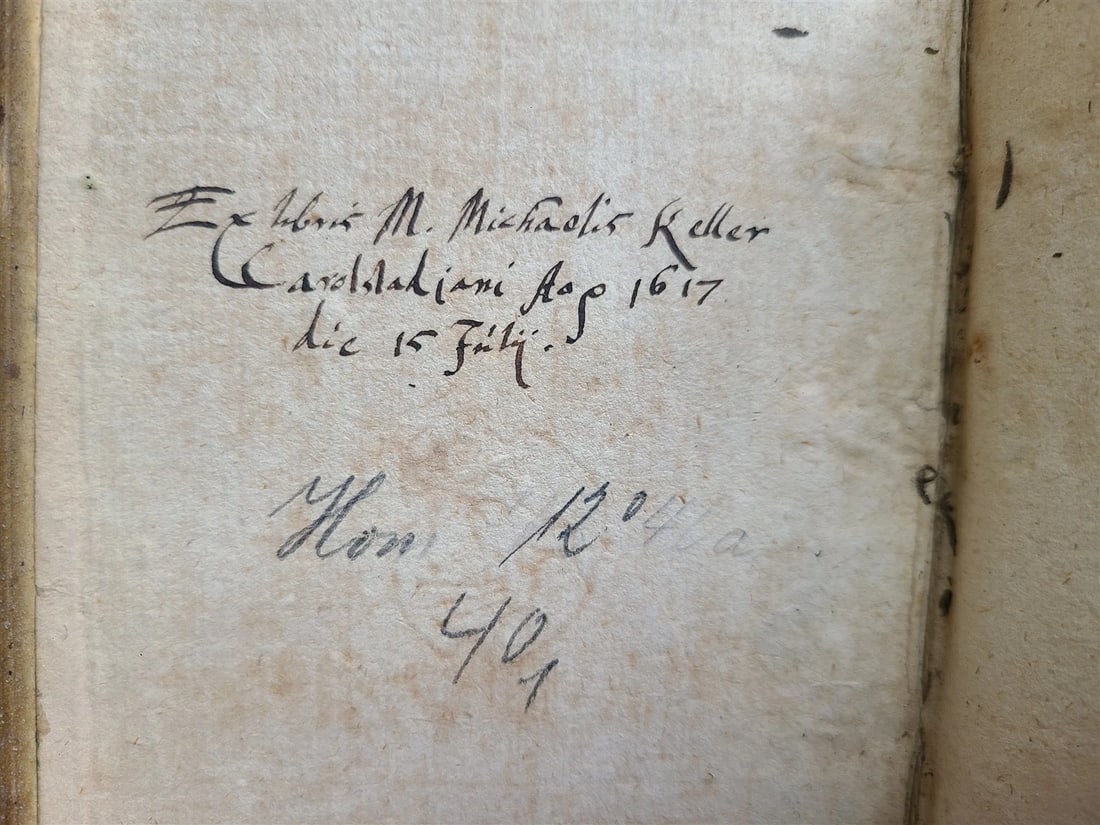 Ex libris M. Michaelis Keller
Carolstadiani Aō 1617
die 15 Julij.
Hom 12°
40
1